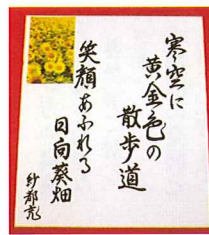 寒空に
黄金色の
散歩道
笑顔あふれる
日向葵畑
紗都亮